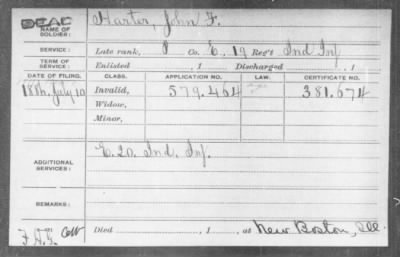 DEAD
NAME OF SOLDIER: Harter, John F.
SERVICE: Late rank, P Co. E, 19 Reg't Ind Inf
TERM OF SERVICE: Enlisted , 1 Discharged , 1
DATE OF FILING. CLASS. APPLICATION NO. LAW. CERTIFICATE NO.
1886, July 10 Invalid, 579.464 381.674
Widow,
Minor,
ADDITIONAL SERVICES: E. 20. Ind. Inf.
REMARKS:
Died , 1 , at New Boston, Ill.